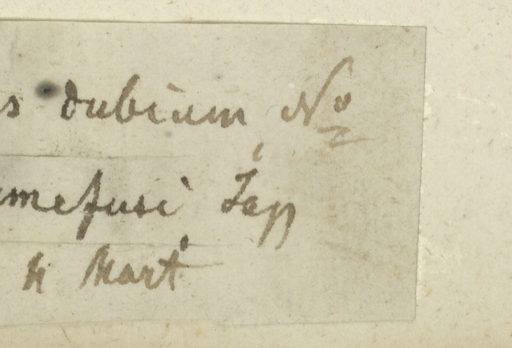 s dubium No
mefusi Jap
4 Mart